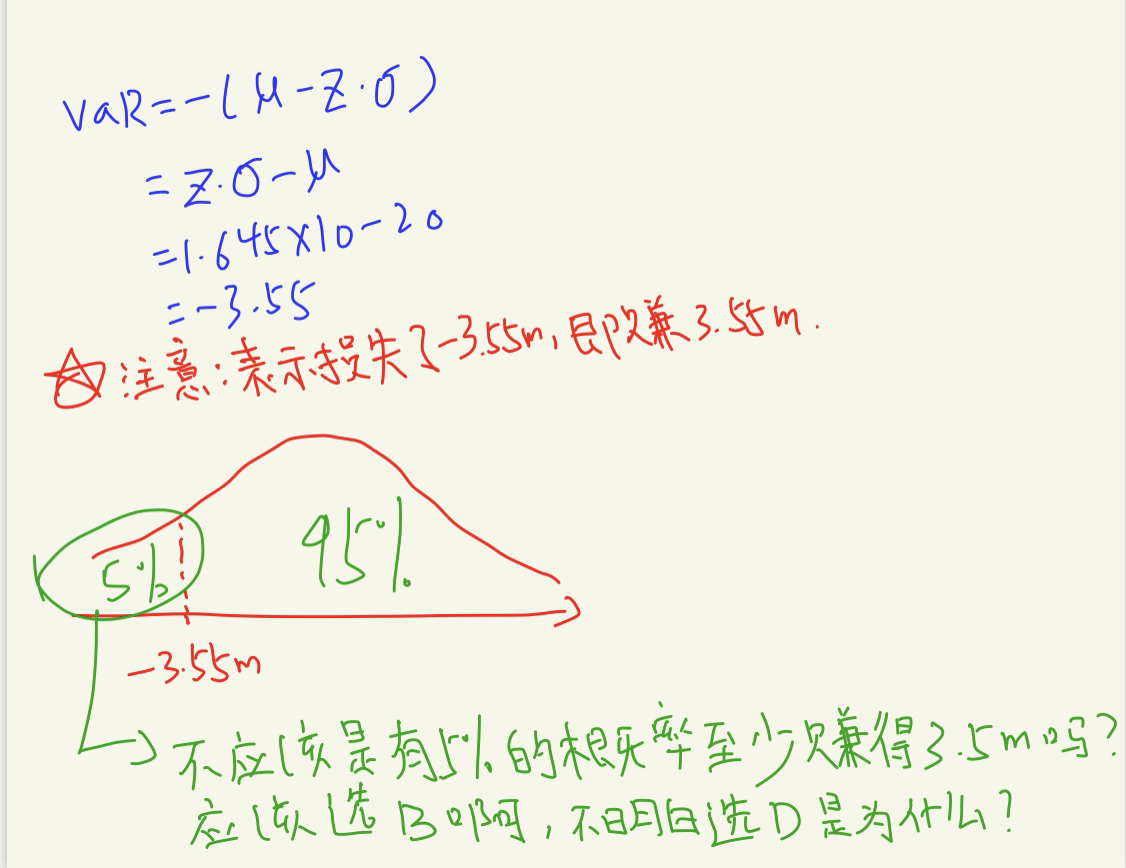 VaR=-(μ-Z·σ)
=Z·σ-μ
=1.645×10-20
=-3.55
☆注意:表示损失了-3.55m,即赚3.55m.
5%
95%
-3.55m
不应该是有5%的概率至少赚得3.5m吗?
应该选B啊,不明白选D是为什么?